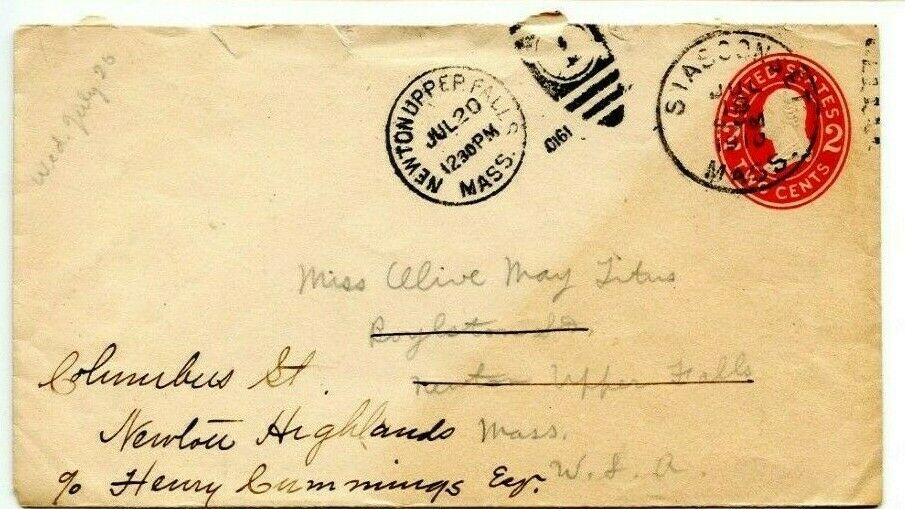 Wed. July 26
NEWTON UPPER FALLS
JUL 20
1230 PM
MASS.
1
1910
SIASCONSET
MASS.
UNITED STATES
2 2
TWO CENTS
Miss Olive May Titus
Boylston St.
Newton Upper Falls
Columbus St.
Newton Highlands Mass.
c/o Henry Cummings Esq. U.S.A.